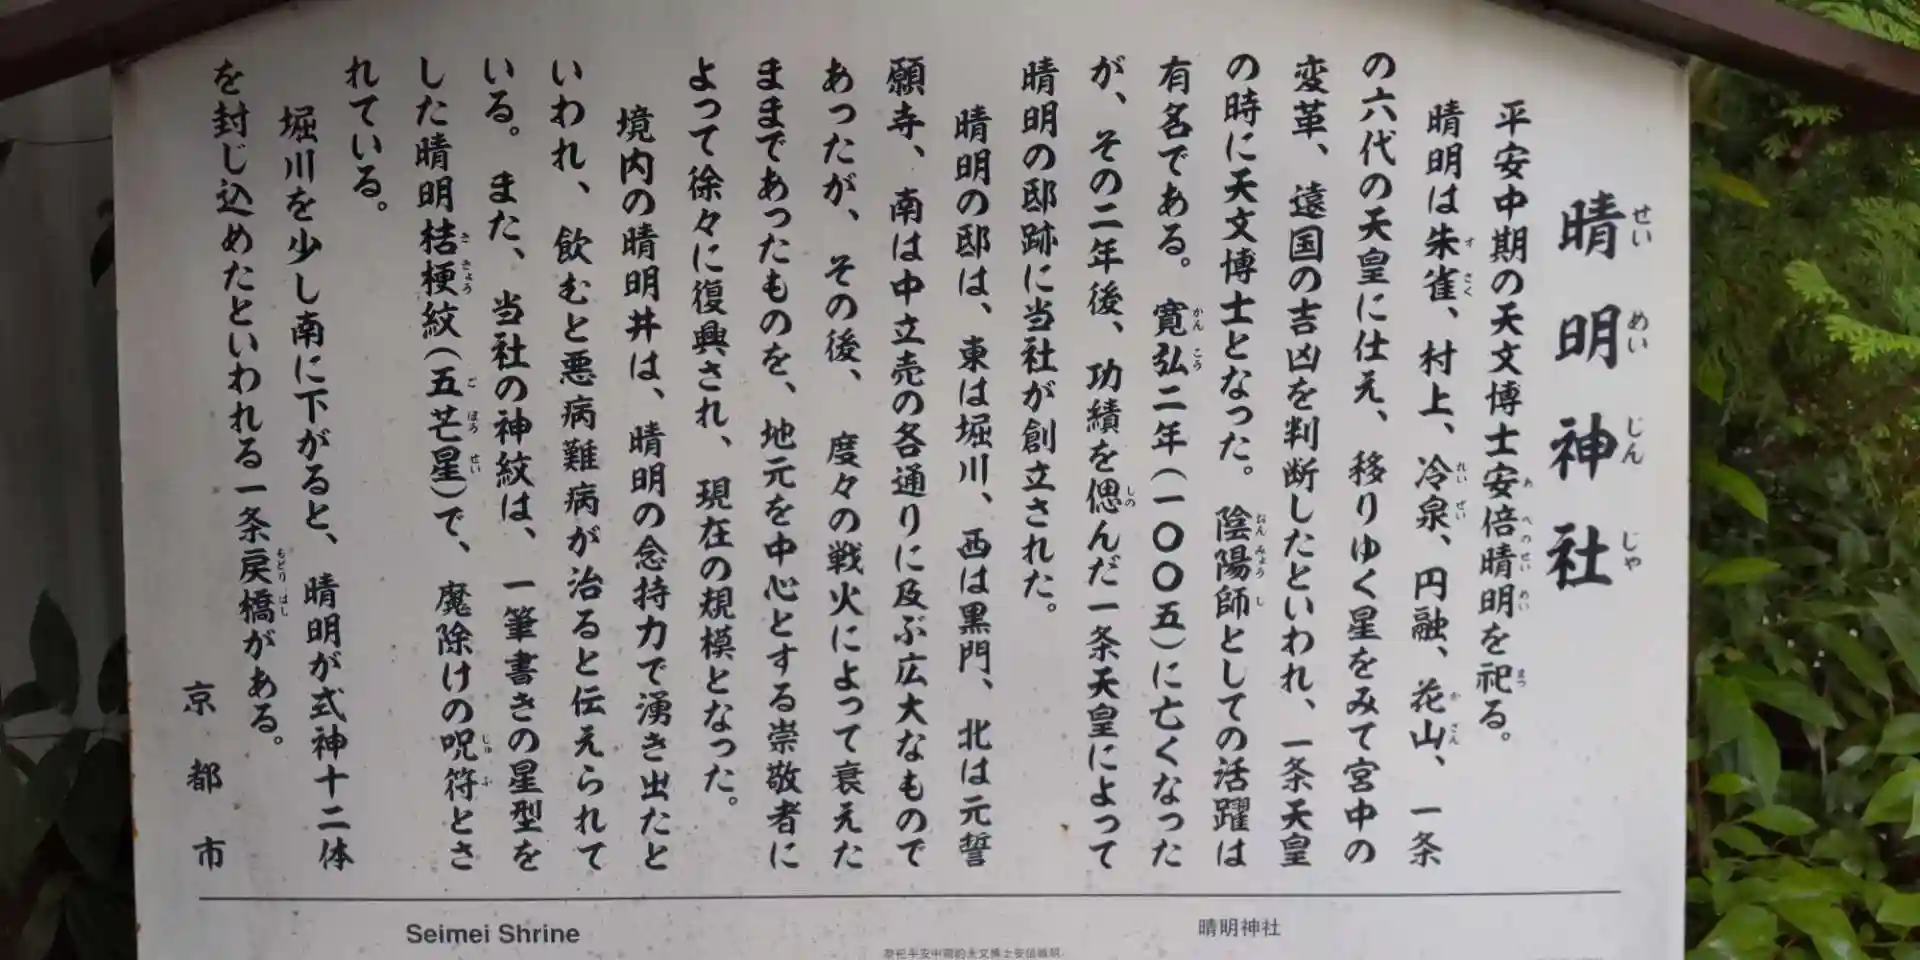 晴明神社
平安中期の天文博士安倍晴明を祀る。
晴明は朱雀、村上、冷泉、円融、花山、一条
の六代の天皇に仕え、移りゆく星をみて宮中の
変革、遠国の吉凶を判断したといわれ、一条天皇
の時に天文博士となった。陰陽師としての活躍は
有名である。寛弘二年(一〇〇五)に亡くなった
が、その二年後、功績を偲んだ一条天皇によって
晴明の邸跡に当社が創立された。
晴明の邸は、東は堀川、西は黒門、北は元誓
願寺、南は中立売の各通りに及ぶ広大なもので
あったが、その後、度々の戦火によって衰えた
ままであったものを、地元を中心とする崇敬者に
よって徐々に復興され、現在の規模となった。
境内の晴明井は、晴明の念持力で湧き出たと
いわれ、飲むと悪病難病が治ると伝えられて
いる。また、当社の神紋は、一筆書きの星型を
した晴明桔梗紋(五芒星)で、魔除けの呪符とさ
れている。
堀川を少し南に下がると、晴明が式神十二体
を封じ込めたといわれる一条戻橋がある。
京都市
Seimei Shrine
晴明神社